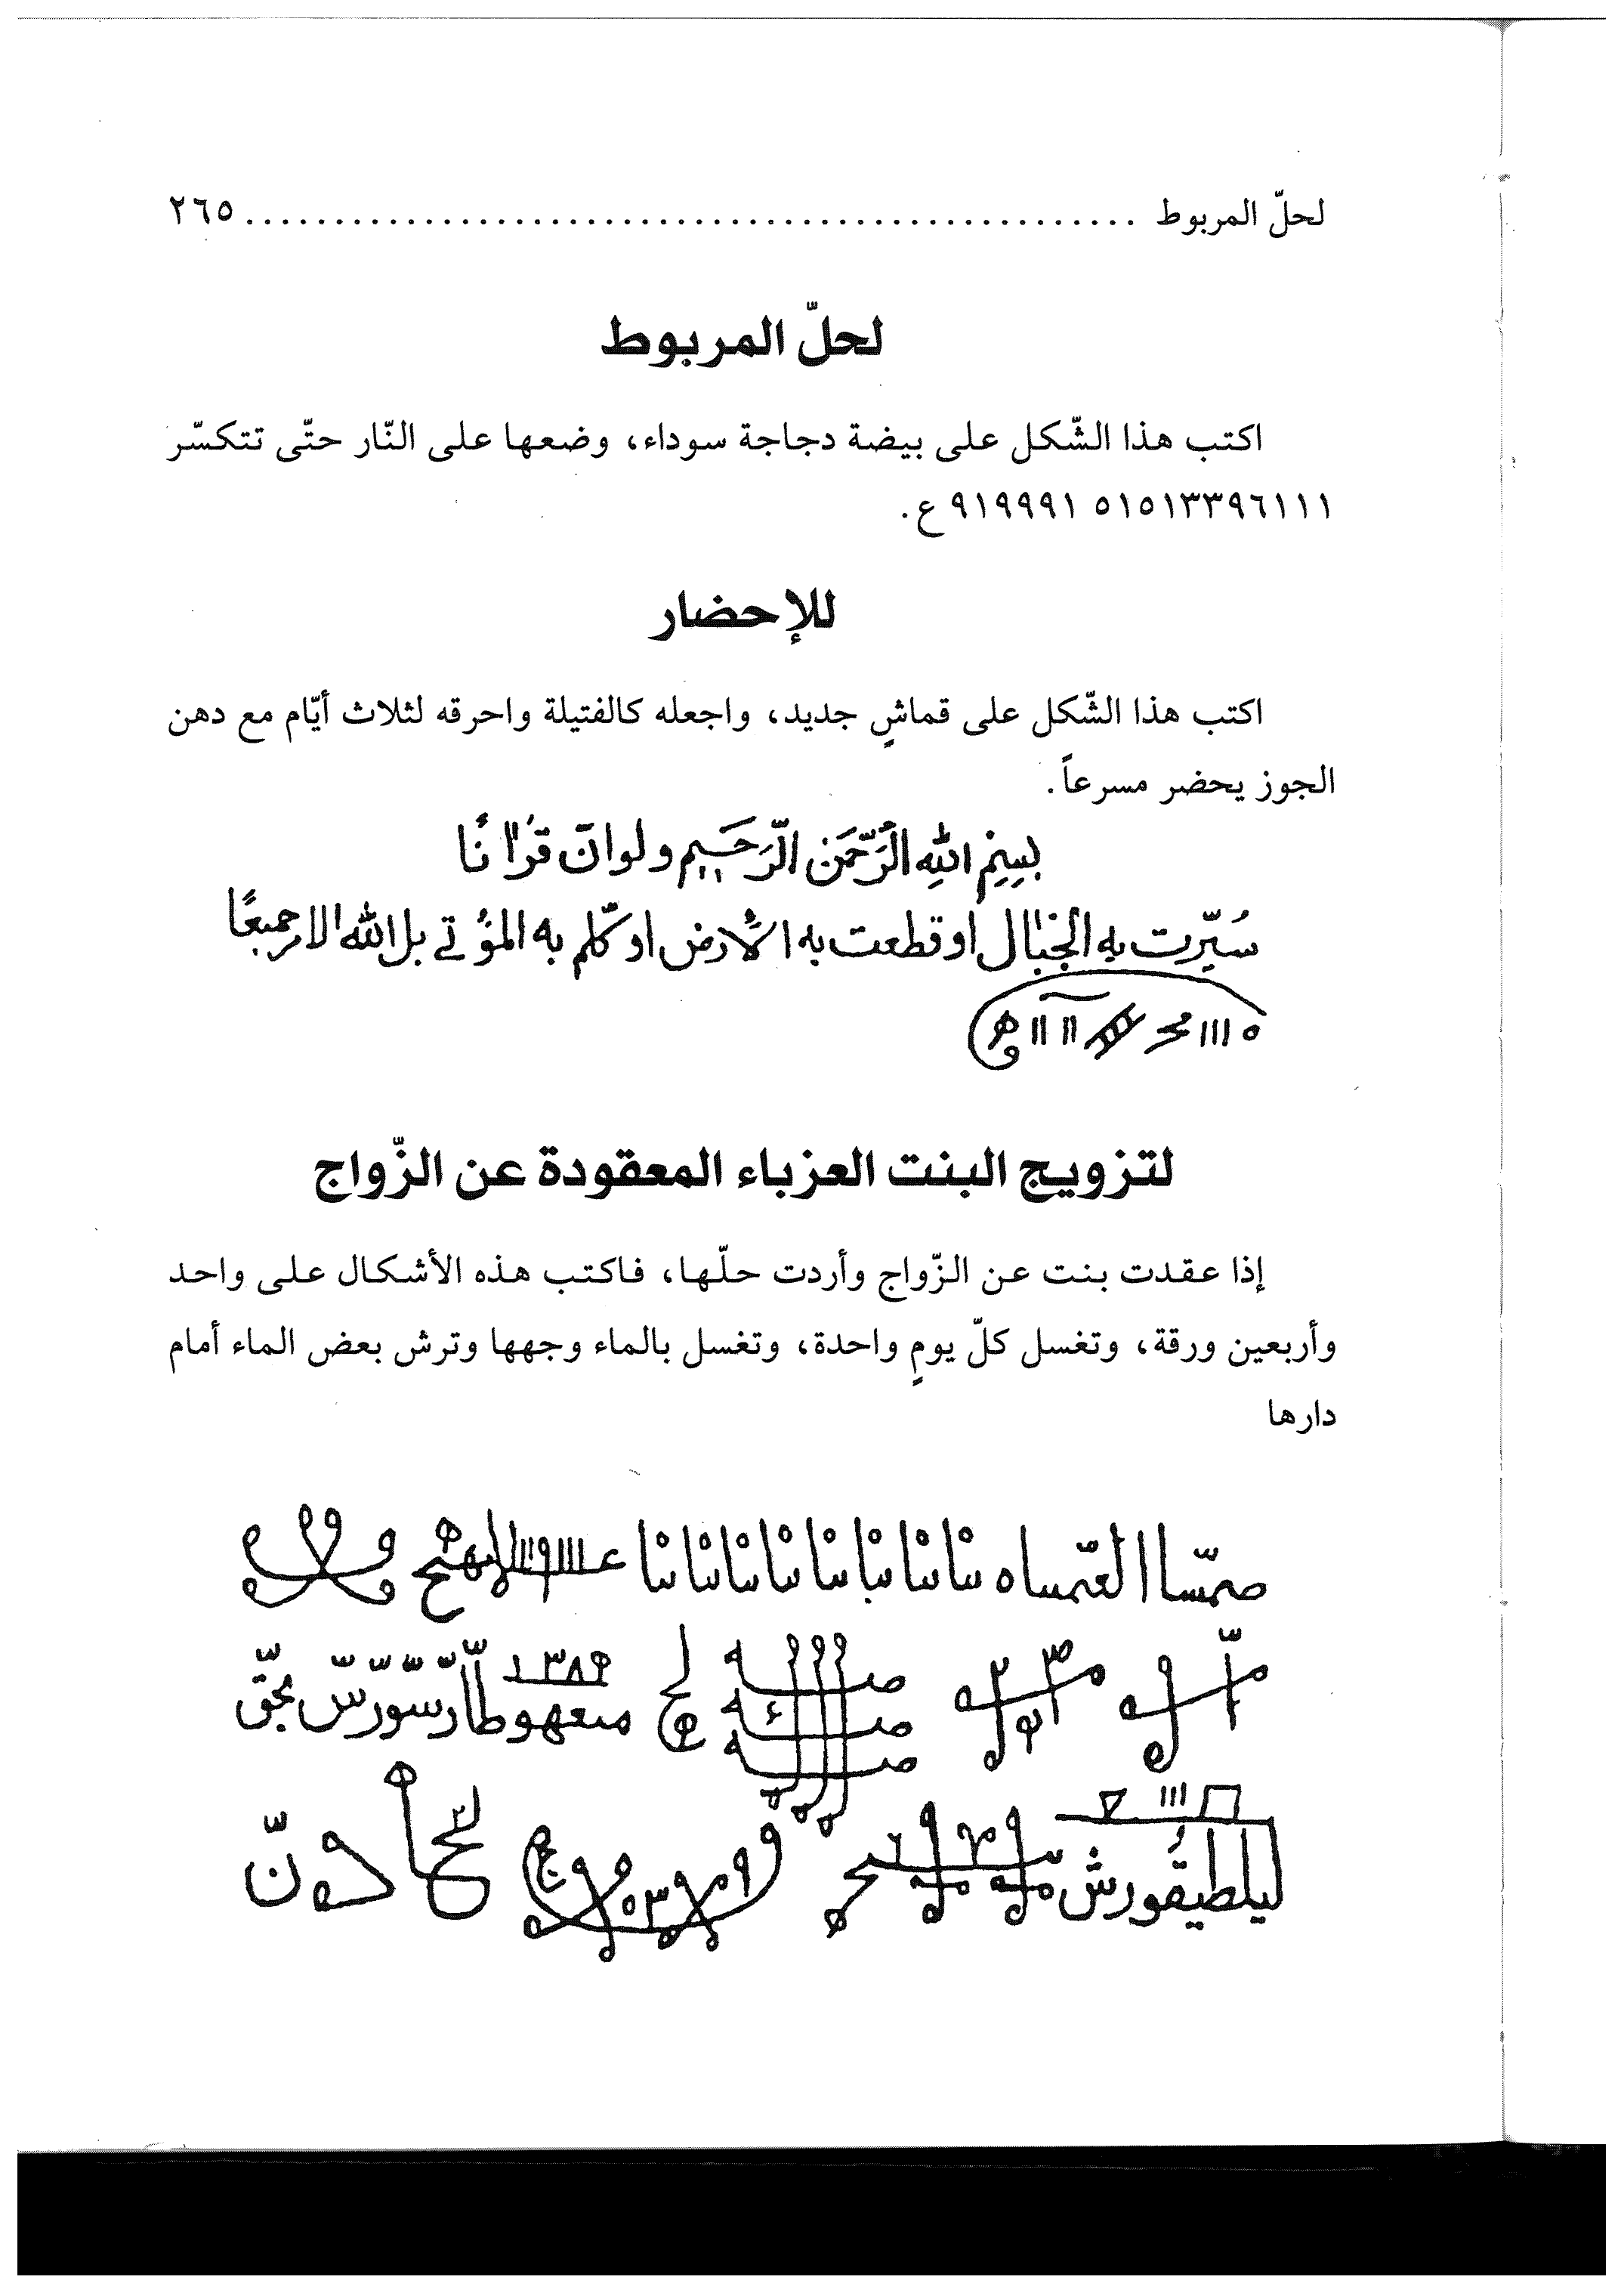 لحلّ المربوط .................................................. ٢٦٥
لحلّ المربوط
اكتب هذا الشّكل على بيضة دجاجة سوداء، وضعها على النّار حتّى تتكسّر
٥١٥١٣٣٩٦١١١ ٩١٩٩٩١ ع.
للإحضار
اكتب هذا الشّكل على قماشٍ جديد، واجعله كالفتيلة واحرقه لثلاث أيّام مع دهن
الجوز يحضر مسرعاً.
بِسْمِ اللهِ الرَّحْمَنِ الرَّحِيمِ ولوانّ قرانًا
سُيّرت به الجبال او قطعت به الارض او كلّم به الموتى بل لله الامر جميعًا
لتزويج البنت العزباء المعقودة عن الزّواج
إذا عقدت بنت عن الزّواج وأردت حلّها، فاكتب هذه الأشكال على واحد
وأربعين ورقة، وتغسل كلّ يومٍ واحدة، وتغسل بالماء وجهها وترش بعض الماء أمام
دارها
بحقّ